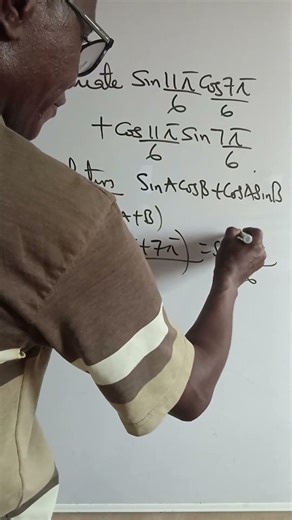 Sin 11π/6 Cos 7π/6
+ Cos 11π/6 Sin 7π/6
SinACosB + CosASinB
A+B)
+ 7π) =